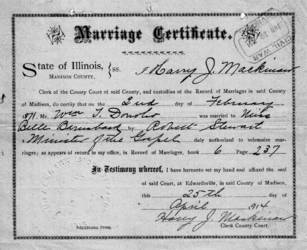 Marriage Certificate.
State of Illinois,
MADISON COUNTY, } ss. I Harry J. Mackinaw
Clerk of the County Court of said County, and custodian of the Record of Marriages of said County
of Madison, do certify that on the 2nd day of February
1871. Wm T. was married to Miss
Belle by Robert Stewart
Minister of the Gospel duly authorized to solemnize mar-
riages; as appears of record in my office, in Record of Marriages, book 6 Page 237
In Testimony whereof, I have hereunto set my hand and affixed the seal
of said Court, at Edwardsville, in said County of Madison,
this 25th day of
April 1914
Harry J. Mackinaw
Clerk County Court.